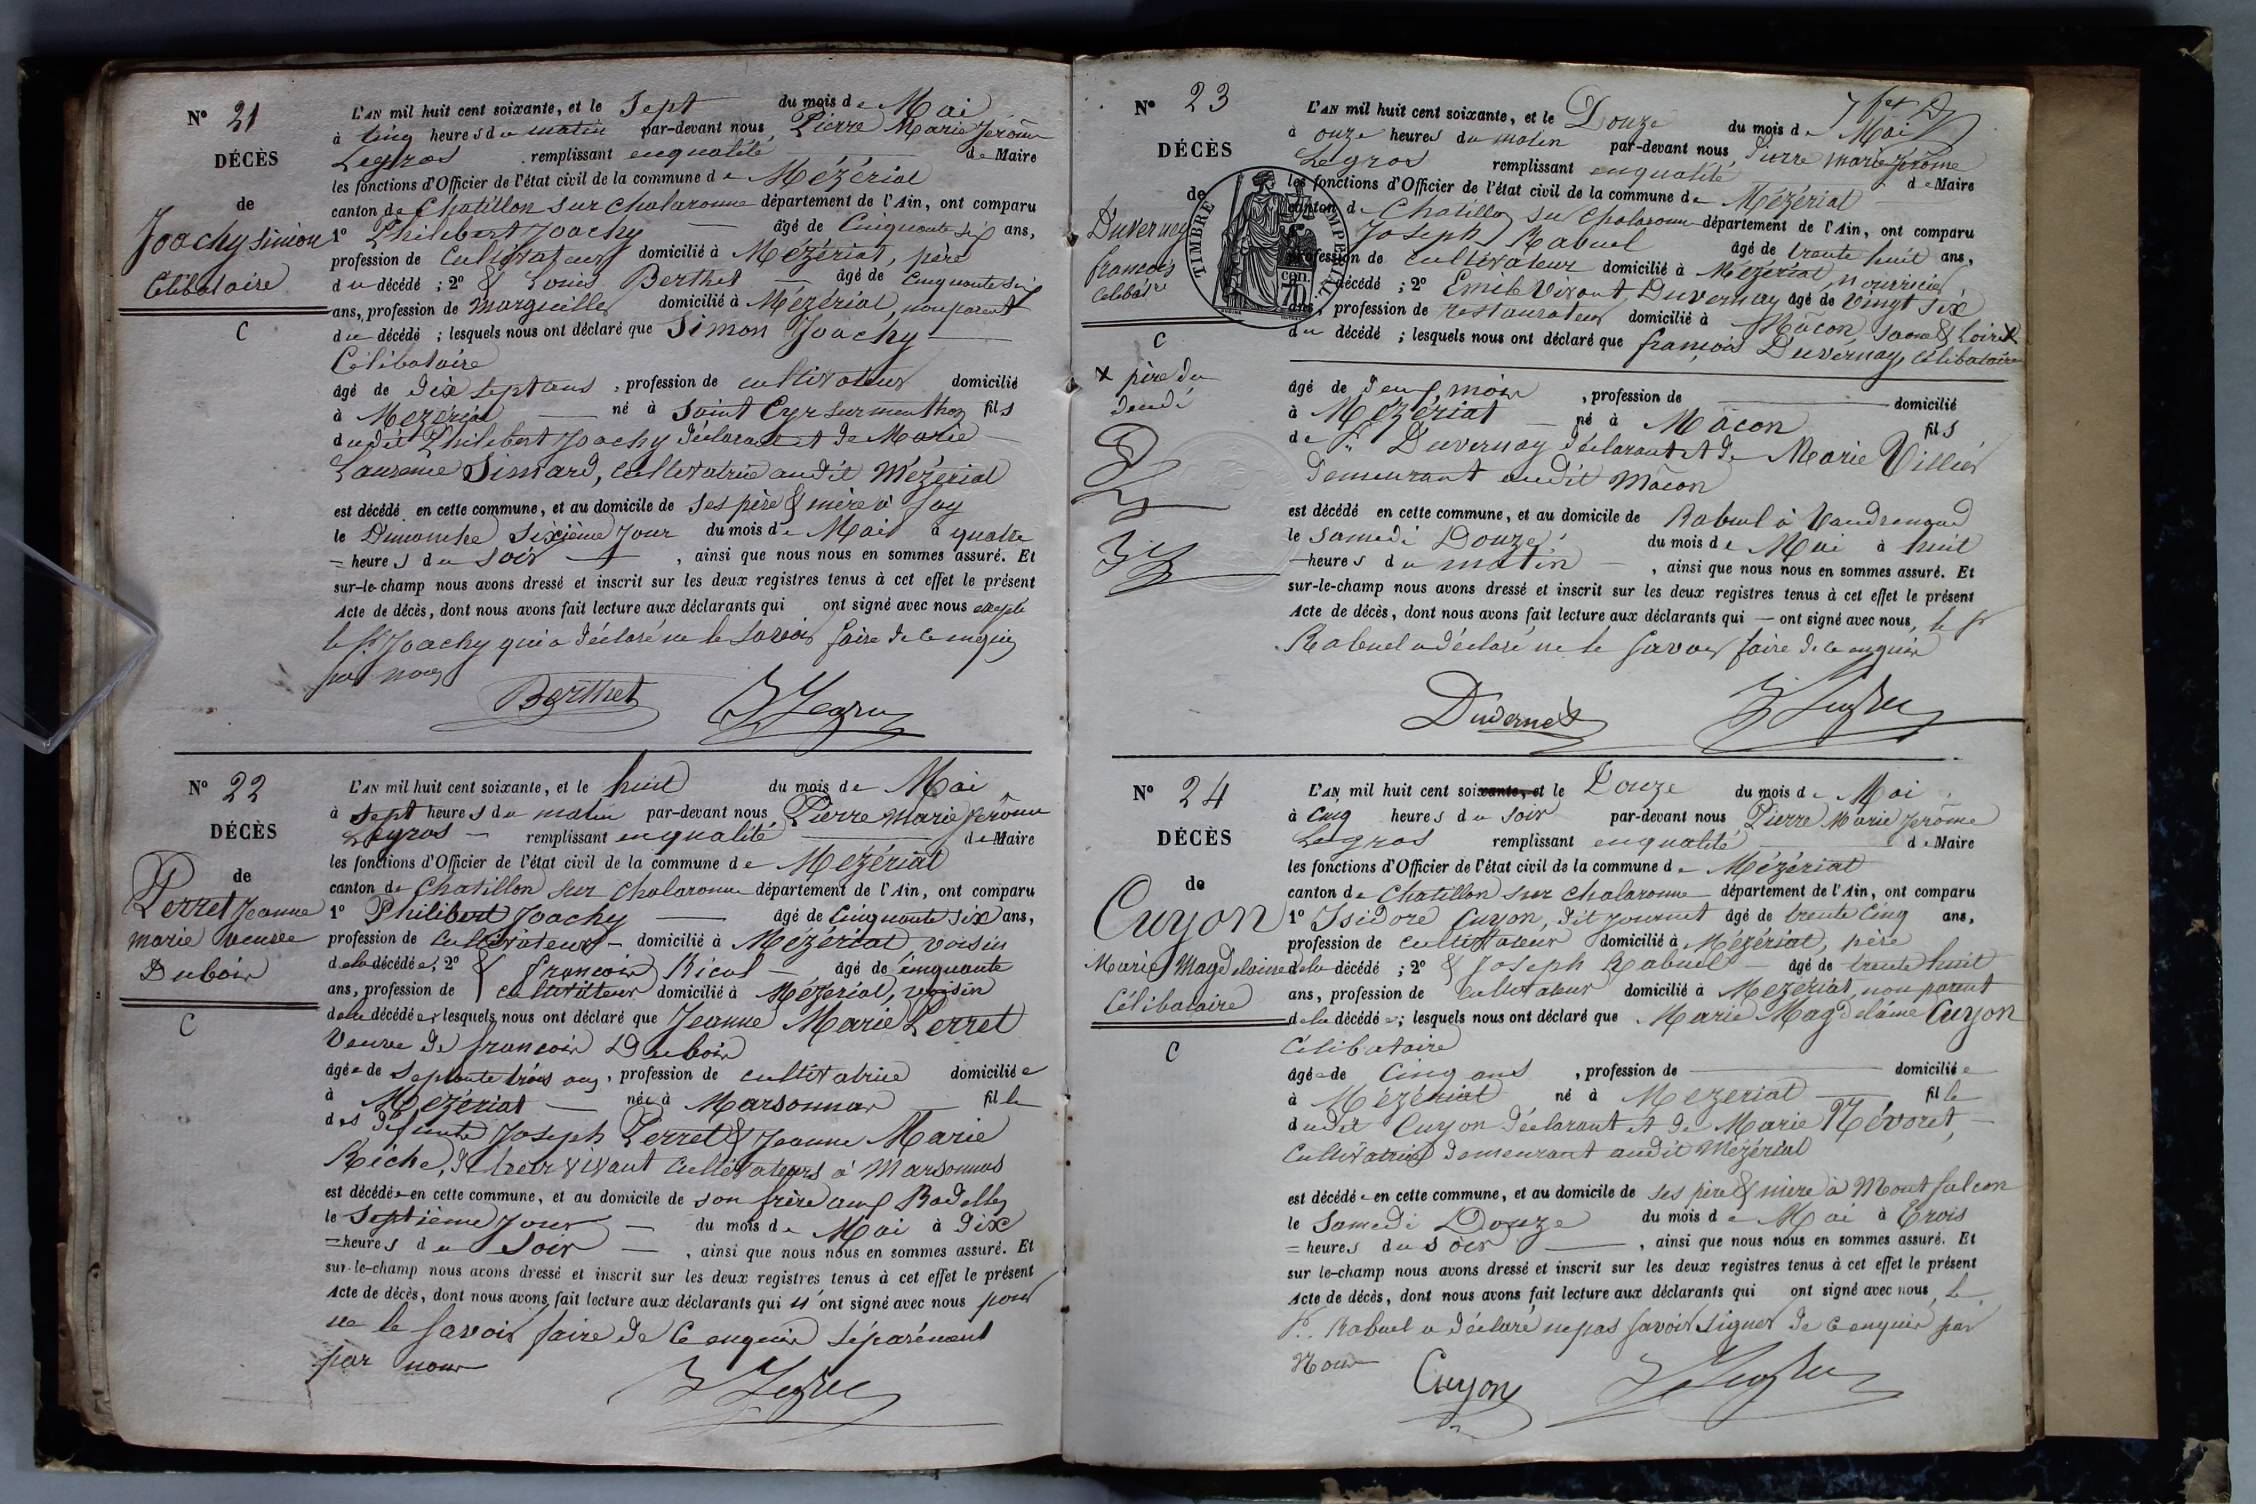 N° 21
DÉCÈS
de
Joachy Simon
Célibataire
C
L'AN mil huit cent soixante, et le Sept du mois de Mai
à cinq heures du matin par-devant nous, Pierre Marie Jérôme
Legros remplissant en qualité de Maire
les fonctions d'Officier de l'état civil de la commune de Mézériat
canton de Chatillon sur Chalaronne département de l'Ain, ont comparu
1° Philibert Joachy âgé de Cinquante six ans,
profession de Cultivateur domicilié à Mézériat, père
du décédé ; 2° & Louis Berthet âgé de Cinquante six
ans, profession de marguiller domicilié à Mézériat, non parent
du décédé ; lesquels nous ont déclaré que Simon Joachy
Célibataire
âgé de dix sept ans, profession de cultivateur domicilié
à Mézériat né à Saint Cyr sur menthon fils
dudit Philibert Joachy déclarant et de Marie
Laurence Simard, Cultivatrice audit Mézériat
est décédé en cette commune, et au domicile de ses père & mère à Jay
le Dimanche sixième jour du mois de Mai à quatre
= heures du soir , ainsi que nous nous en sommes assuré. Et
sur-le-champ nous avons dressé et inscrit sur les deux registres tenus à cet effet le présent
Acte de décès, dont nous avons fait lecture aux déclarants qui ont signé avec nous excepté
le Sr Joachy qui a déclaré ne le savoir faire de ce enquis
par nous
Berthet Legros
N° 22
DÉCÈS
de
Perret Jeanne
marie veuve
Dubois
C
L'AN mil huit cent soixante, et le huit du mois de Mai
à sept heures du matin par-devant nous, Pierre Marie Jérôme
Legros remplissant en qualité de Maire
les fonctions d'Officier de l'état civil de la commune de Mézériat
canton de Chatillon sur Chalaronne département de l'Ain, ont comparu
1° Philibert Joachy âgé de Cinquante six ans,
profession de Cultivateur domicilié à Mézériat, voisin
de la décédée, 2° & françois Ricol âgé de cinquante
ans, profession de cultivateur domicilié à Mézériat, voisin
de la décédée, lesquels nous ont déclaré que Jeanne Marie Perret
Veuve de françois Dubois
âgée de Septante trois ans, profession de cultivatrice domiciliée
à Mézériat née à Marsonnas fille
des défunts Joseph Perret & Jeanne Marie
Riche, de leur vivant Cultivateurs à Marsonnas
est décédée en cette commune, et au domicile de son frère aux Badelles
le Septième jour du mois de Mai à dix
= heures du Soir , ainsi que nous nous en sommes assuré. Et
sur-le-champ nous avons dressé et inscrit sur les deux registres tenus à cet effet le présent
Acte de décès, dont nous avons fait lecture aux déclarants qui n'ont signé avec nous pour
ne le savoir faire de ce enquis séparément
par nous
Legros
N° 23
DÉCÈS
de
Duvernay
françois
Célibataire
C
x père du
décédé
TIMBRE IMPERIAL
70 cen.
L'AN mil huit cent soixante, et le Douze du mois de Mai
à onze heures du matin par-devant nous, Pierre marie jérôme
Legros remplissant en qualité de Maire
les fonctions d'Officier de l'état civil de la commune de Mézériat
canton de Chatillon sur Chalaronne département de l'Ain, ont comparu
Joseph Rabuel âgé de trente huit ans,
profession de cultivateur domicilié à Mézériat, nourricier
décédé ; 2° Duvernay âgé de Vingt six
ans, profession de restaurateur domicilié à Mâcon, Saone & Loire x
du décédé ; lesquels nous ont déclaré que françois Duvernay, Célibataire
âgé de deux mois , profession de domicilié
à Mézériat né à Mâcon fils
de Sr Duvernay déclarant et de Marie Villier
demeurant audit Mâcon
est décédé en cette commune, et au domicile de Rabuel à
le samedi Douze du mois de Mai à huit
= heures du matin , ainsi que nous nous en sommes assuré. Et
sur-le-champ nous avons dressé et inscrit sur les deux registres tenus à cet effet le présent
Acte de décès, dont nous avons fait lecture aux déclarants qui — ont signé avec nous, le Sr
Rabuel a déclaré ne le savoir faire de ce enquis
Duvernay Legros
N° 24
DÉCÈS
de
Cuyon
Marie Magdelaine
Célibataire
C
L'AN mil huit cent soixante, et le Douze du mois de Mai
à Cinq heures du soir par-devant nous Pierre Marie Jérôme
Legros remplissant en qualité de Maire
les fonctions d'Officier de l'état civil de la commune de Mézériat
canton de Chatillon sur Chalaronne département de l'Ain, ont comparu
1° Isidore Cuyon, dit journet âgé de trente Cinq ans,
profession de cultivateur domicilié à Mézériat, père
de la décédé ; 2° & Joseph Rabuel âgé de trente huit
ans, profession de Cultivateur domicilié à Mézériat, non parent
de la décédée ; lesquels nous ont déclaré que Marie Magdelaine Cuyon
Célibataire
âgée de Cinq ans , profession de domiciliée
à Mézériat né à Mezeriat fille
dudit Cuyon déclarant et de Marie Névoret,
Cultivatrice demeurant audit Mézériat
est décédée en cette commune, et au domicile de ses père & mère à Montfalcon
le Samedi Douze du mois de Mai à trois
= heures du soir , ainsi que nous nous en sommes assuré. Et
sur le-champ nous avons dressé et inscrit sur les deux registres tenus à cet effet le présent
Acte de décès, dont nous avons fait lecture aux déclarants qui ont signé avec nous, le
Sr. Rabuel a déclaré ne pas savoir signer de ce enquis par
Nous
Cuyon Legros